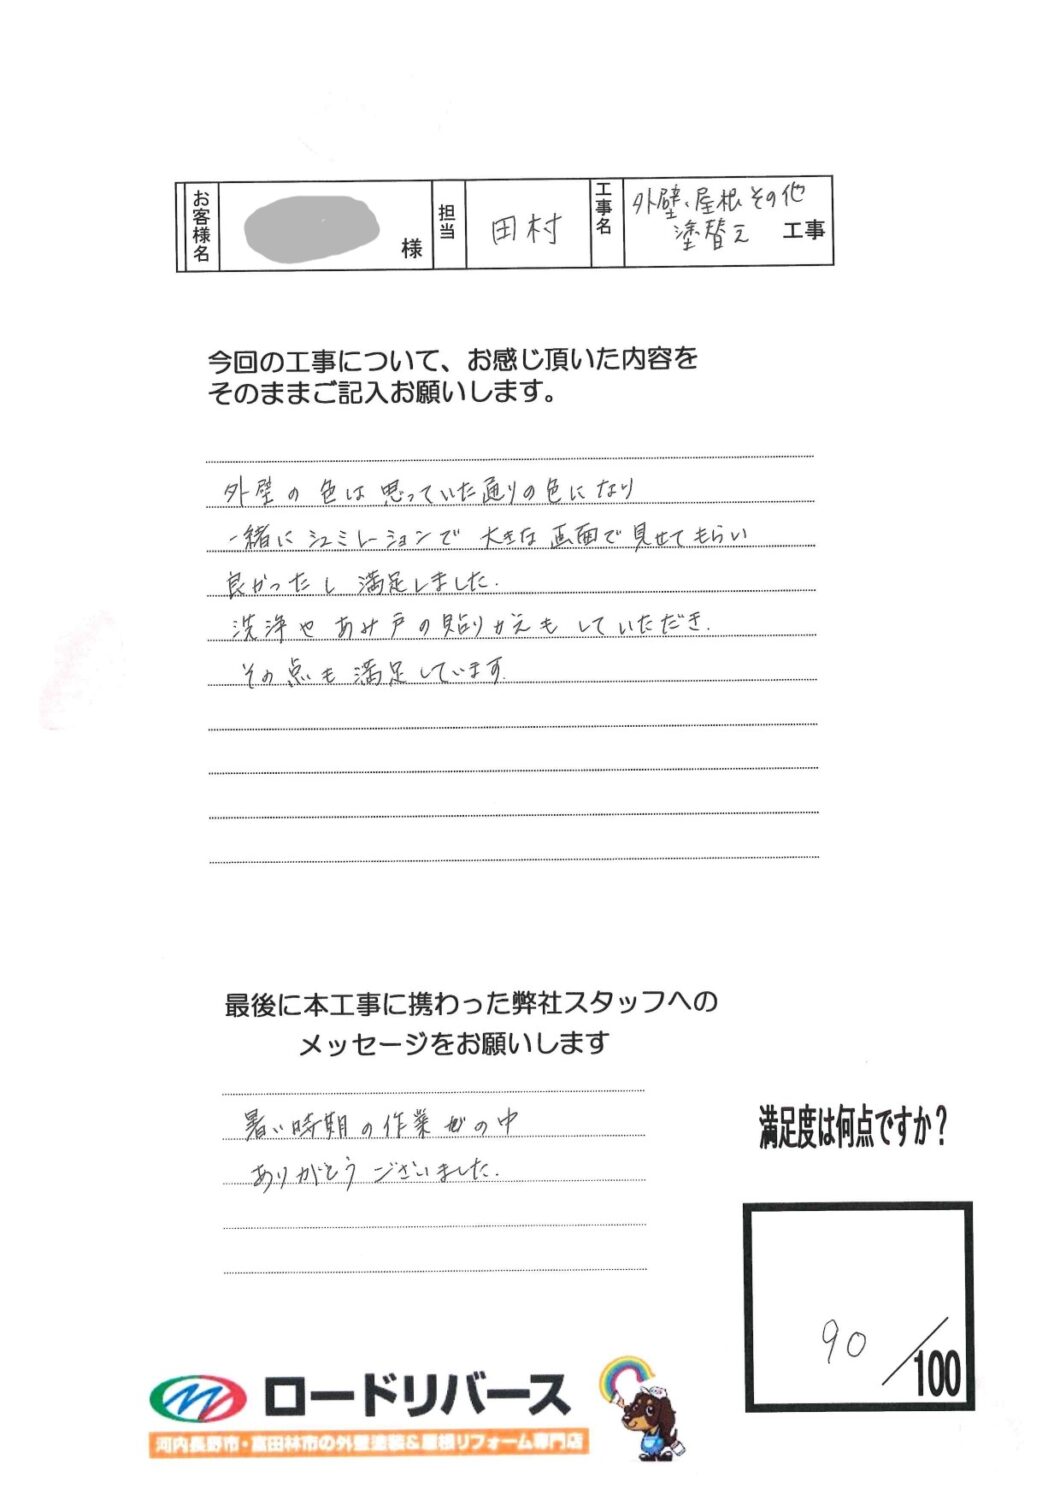 お客様名
様
担当
田村
工事名
外壁、屋根その他
塗替え 工事
今回の工事について、お感じ頂いた内容を
そのままご記入お願いします。
外壁の色は思っていた通りの色になり
一緒にシュミレーションで大きな画面で見せてもらい
良かったし満足しました.
洗浄やあみ戸の貼りかえもしていただき.
その点も満足しています.
最後に本工事に携わった弊社スタッフへの
メッセージをお願いします
暑い時期の作業の中
ありがとうございました.
満足度は何点ですか？
90/100
ロードリバース
河内長野市・富田林市の外壁塗装&屋根リフォーム専門店